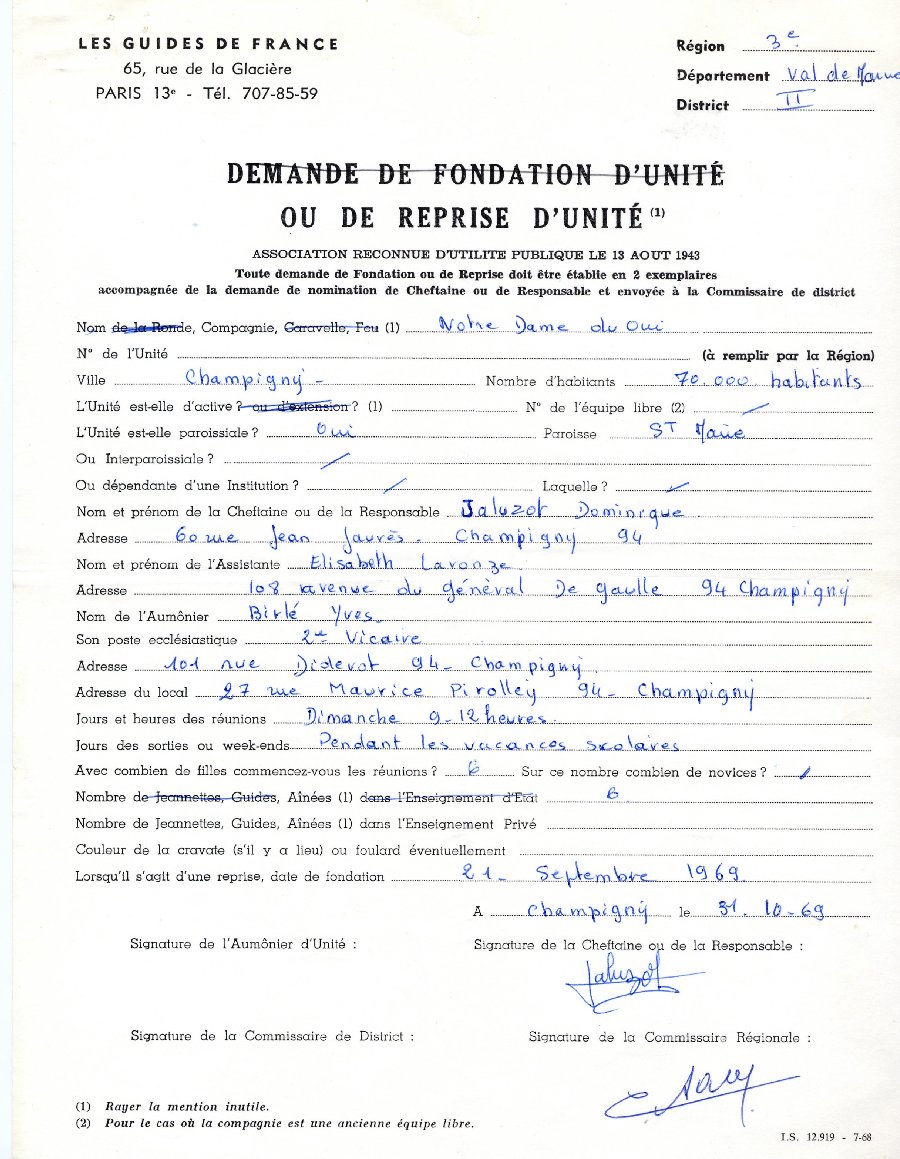 LES GUIDES DE FRANCE
65, rue de la Glacière
PARIS 13e - Tél. 707-85-59
Région 3e
Département Val de Marne
District II
DEMANDE DE FONDATION D'UNITÉ
OU DE REPRISE D'UNITÉ (1)
ASSOCIATION RECONNUE D'UTILITE PUBLIQUE LE 13 AOUT 1943
Toute demande de Fondation ou de Reprise doit être établie en 2 exemplaires
accompagnée de la demande de nomination de Cheftaine ou de Responsable et envoyée à la Commissaire de district
Nom de la Ronde, Compagnie, Caravelle, Feu (1) Notre Dame du Oui
N° de l'Unité (à remplir par la Région)
Ville Champigny - Nombre d'habitants 70.000 habitants
L'Unité est-elle d'active ? ou d'extension ? (1) N° de l'équipe libre (2) /
L'Unité est-elle paroissiale ? Oui Paroisse ST Marie
Ou Interparoissiale ? /
Ou dépendante d'une Institution ? / Laquelle ? /
Nom et prénom de la Cheftaine ou de la Responsable Jaluzot Dominique
Adresse 60 rue Jean Jaurès. Champigny 94
Nom et prénom de l'Assistante Elisabeth Laronze
Adresse 108 avenue du général De gaulle 94 Champigny
Nom de l'Aumônier Birlé Yves
Son poste ecclésiastique 2e Vicaire
Adresse 101 rue Diderot 94 - Champigny
Adresse du local 27 rue Maurice Pirolley 94 - Champigny
Jours et heures des réunions Dimanche 9-12 heures.
Jours des sorties ou week-ends Pendant les vacances scolaires
Avec combien de filles commencez-vous les réunions ? 6 Sur ce nombre combien de novices ? /
Nombre de Jeannettes, Guides, Aînées (1) dans l'Enseignement d'Etat 6
Nombre de Jeannettes, Guides, Aînées (1) dans l'Enseignement Privé
Couleur de la cravate (s'il y a lieu) ou foulard éventuellement
Lorsqu'il s'agit d'une reprise, date de fondation 21 - Septembre 1969
A Champigny le 31-10-69
Signature de l'Aumônier d'Unité :
Signature de la Cheftaine ou de la Responsable :
Jaluzot
Signature de la Commissaire de District :
Signature de la Commissaire Régionale :
(1) Rayer la mention inutile.
(2) Pour le cas où la compagnie est une ancienne équipe libre.
I.S. 12.919 - 7-68